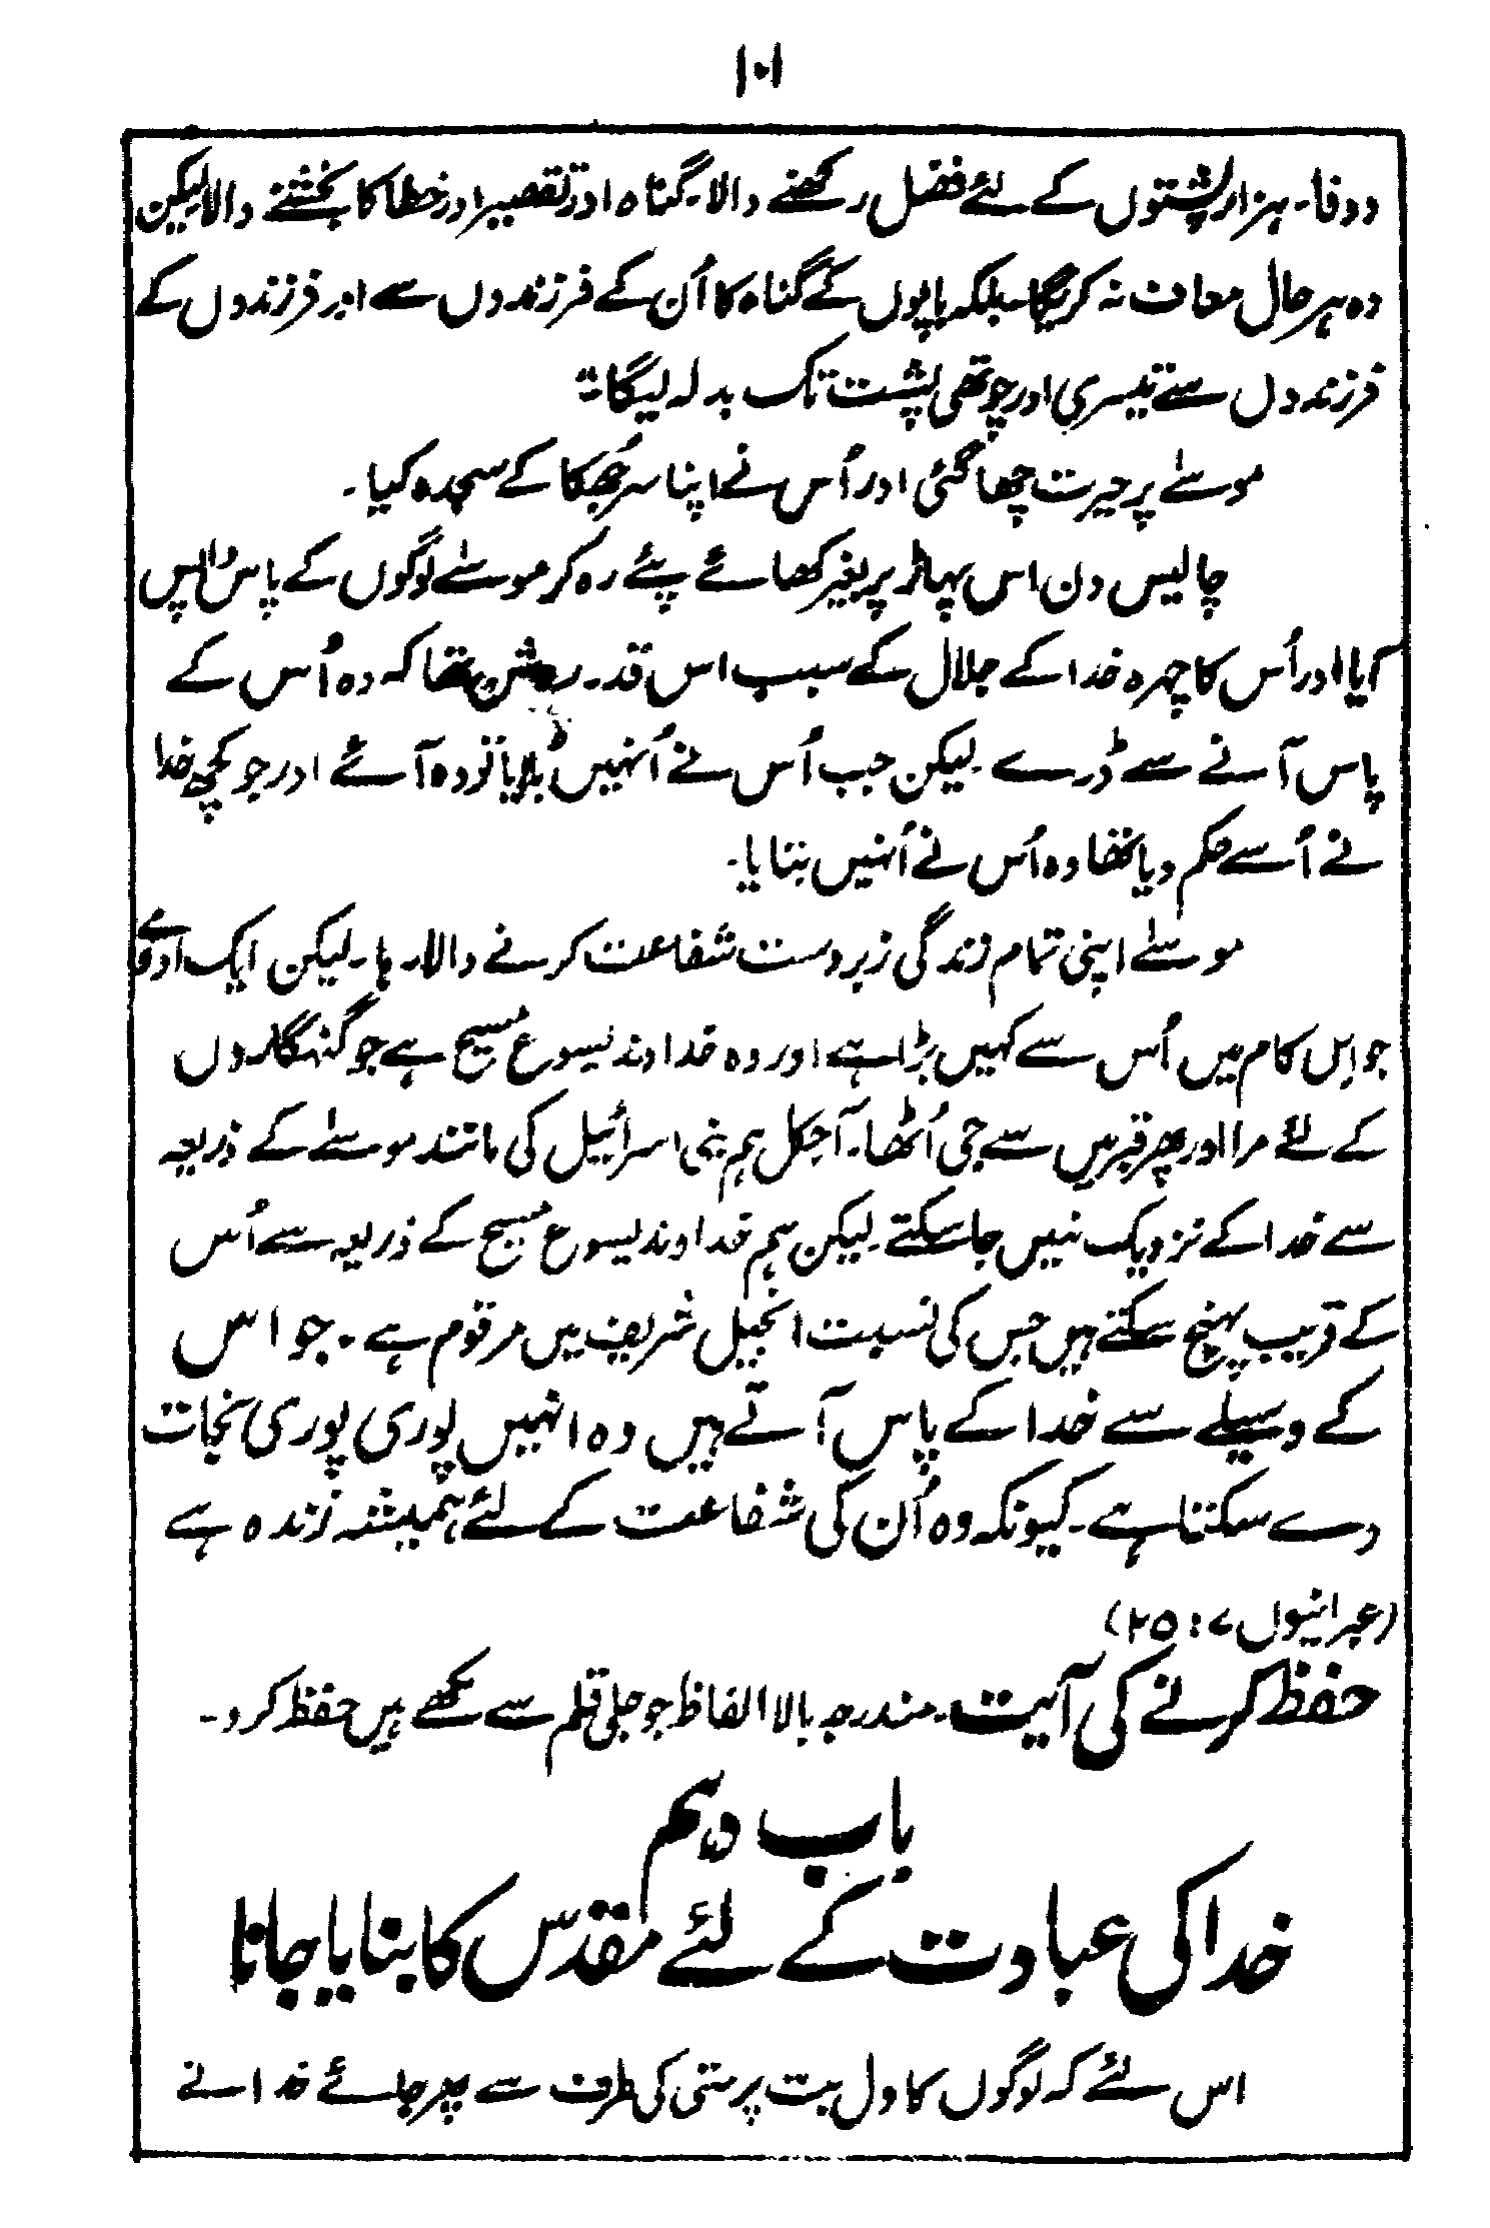 ۱۰۱
ووفا۔ ہزار پشتوں کے لئے فضل رکھنے والا۔ گناہ اور تقصیر اور خطا کا بخشنے والا لیکن
وہ ہر حال معاف نہ کریگا۔ بلکہ باپوں کے گناہ کا اُن کے فرزندوں سے اور فرزندوں کے
فرزندوں سے تیسری اور چوتھی پشت تک بدلہ لیگا۔"
موسےٰ پر حیرت چھا گئی اور اُس نے اپنا سر جُھکا کے سجدہ کیا۔
چالیس دن اس پہاڑ پر بغیر کھائے پئے رہ کر موسےٰ لوگوں کے پاس واپس
آیا اور اُس کا چہرہ خدا کے جلال کے سبب اس قدر روشن تھا کہ وہ اُس کے
پاس آنے سے ڈرے۔ لیکن جب اُس نے اُنہیں بلایا تو وہ آئے اور جو کچھ خدا
نے اُسے حکم دیا تھا وہ اُس نے اُنہیں بتایا۔
موسےٰ اپنی تمام زندگی زبردست شفاعت کرنے والا رہا۔ لیکن ایک اور ہے
جو اِس کام میں اُس سے کہیں بڑا ہے اور وہ خداوند یسوع مسیح ہے جو گنہگاروں
کے لئے مرا اور پھر قبر میں سے جی اُٹھا۔ آجکل ہم بنی اسرائیل کی مانند موسےٰ کے ذریعہ
سے خدا کے نزدیک نہیں جا سکتے۔ لیکن ہم خداوند یسوع مسیح کے ذریعہ سے اُس
کے قریب پہنچ سکتے ہیں جس کی نسبت انجیل شریف میں مرقوم ہے۔ جو اس
کے وسیلے سے خدا کے پاس آتے ہیں وہ انہیں پوری پوری نجات
دے سکتا ہے۔ کیونکہ وہ اُن کی شفاعت کے لئے ہمیشہ زندہ ہے
(عبرانیوں ۷: ۲۵)
حفظ کرنے کی آیت۔ مندرجہ بالا الفاظ جو جلی قلم سے لکھے ہیں حفظ کرو۔
باب دہم
خدا کی عبادت کے لئے مقدس کا بنایا جانا
اس لئے کہ لوگوں کا دل بت پرستی کی طرف سے پھر جائے خدا نے